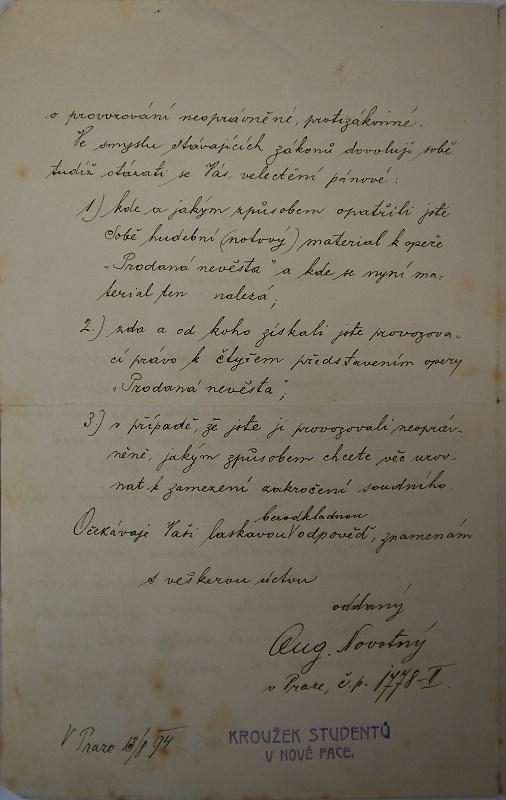 o provozování neoprávněné, protizákonné.
Ve smyslu stávajících zákonů dovoluji sobě
tudíž otázati se Vás, velectění pánové:
1) kde a jakým způsobem opatřili jste
Sobě hudební (notový) material k opeře
„Prodaná nevěsta“ a kde se nyní ma-
terial ten nalezá;
2.) zda a od koho získali jste provozova-
cí právo k čtyřem představením opery
„Prodaná nevěsta“;
3.) v případě, že jste ji provozovali neopráv-
něně, jakým způsobem chcete věc urov-
nat k zamezení zakročení soudního.
bezodkladnou
Očekávaje Vaši laskavou odpověď, znamenám
s veškerou úctou
oddaný
Aug. Novotný
v Praze, č.p. 1778-II.
V Praze 13/8 94.
KROUŽEK STUDENTŮ
V NOVÉ PACE.